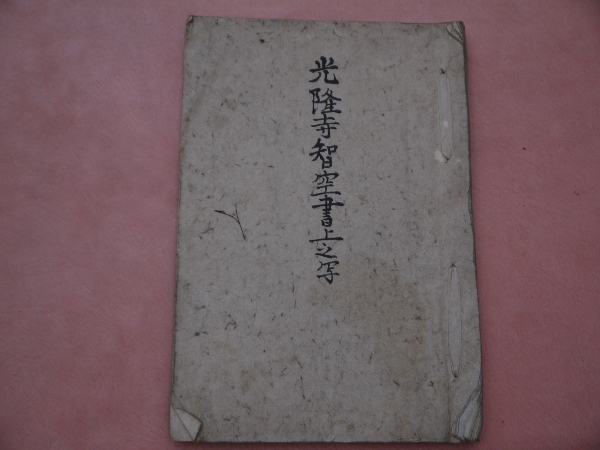 光隆寺智空書上之写